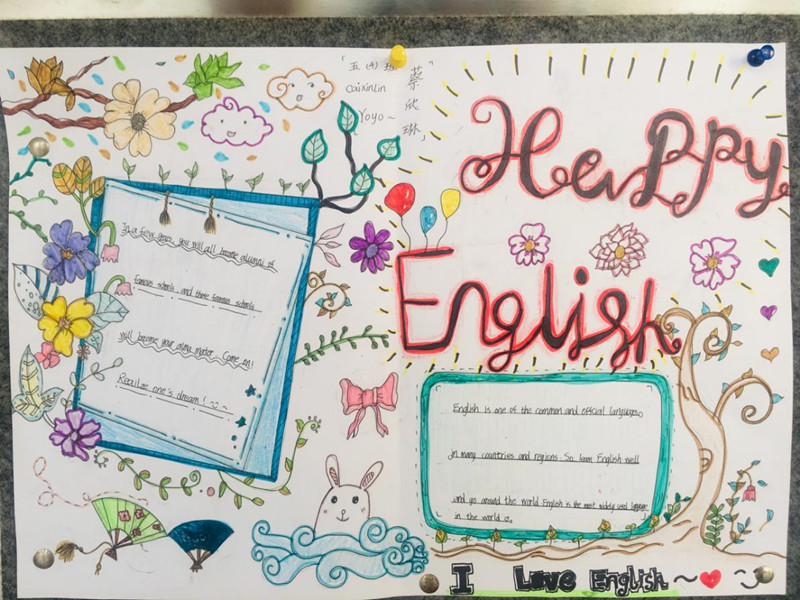 「五(4)班
蔡欣琳」
CaiXinLin
Yoyo~
Happy
English
In a few years, you will all become alumni of
famous schools and these famous schools
will become your alma mater. Come on!
Realize one's dream!
English is one of the common and official languages
in many countries and regions. So learn English well
and go around the world English is the most widely used language
in the world
I Love English~